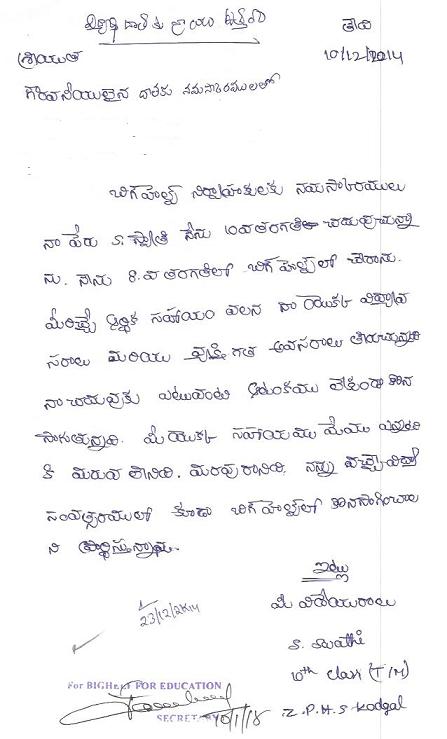 విద్యార్థి దాతకు వ్రాయు ఉత్తరం
తేది
శ్రీయుత
10/12/2014
గౌరవనీయులైన దాతకు నమస్కారములతో
బిగ్ హెల్ప్ నిర్వాహకులకు నమస్కారములు
నా పేరు S. స్వాతి నేను 10వ తరగతి చదువుచున్నా
ను. నాను 8.వ తరగతిలో బిగ్ హెల్ప్ లో చేరాను.
మీరిచ్చే ఆర్థిక సహాయం వలన నా యొక్క విద్యావ
సరాలు మరియు వ్యక్తి గత అవసరాలు తీరుచున్నవి
నా చదువుకు ఎటువంటి ఆటంకము లేకుండా కొన
సాగుతున్నది. మీ యొక్క సహాయము మేము ఎప్పటి
కి మరువ లేనిది. మరపురానిది. నన్ను వచ్చే విద్యా
సంవత్సరములో కూడా బిగ్ హెల్ప్ లో కొనసాగించాల
ని ప్రార్థిస్తున్నాను.
ఇట్లు
మీ విధేయురాలు
S. Swathi
10th class (T/M)
Z.P.H.S Kodgal
23/12/2014
For BIGHELP FOR EDUCATION
SECRETARY
10/1/15